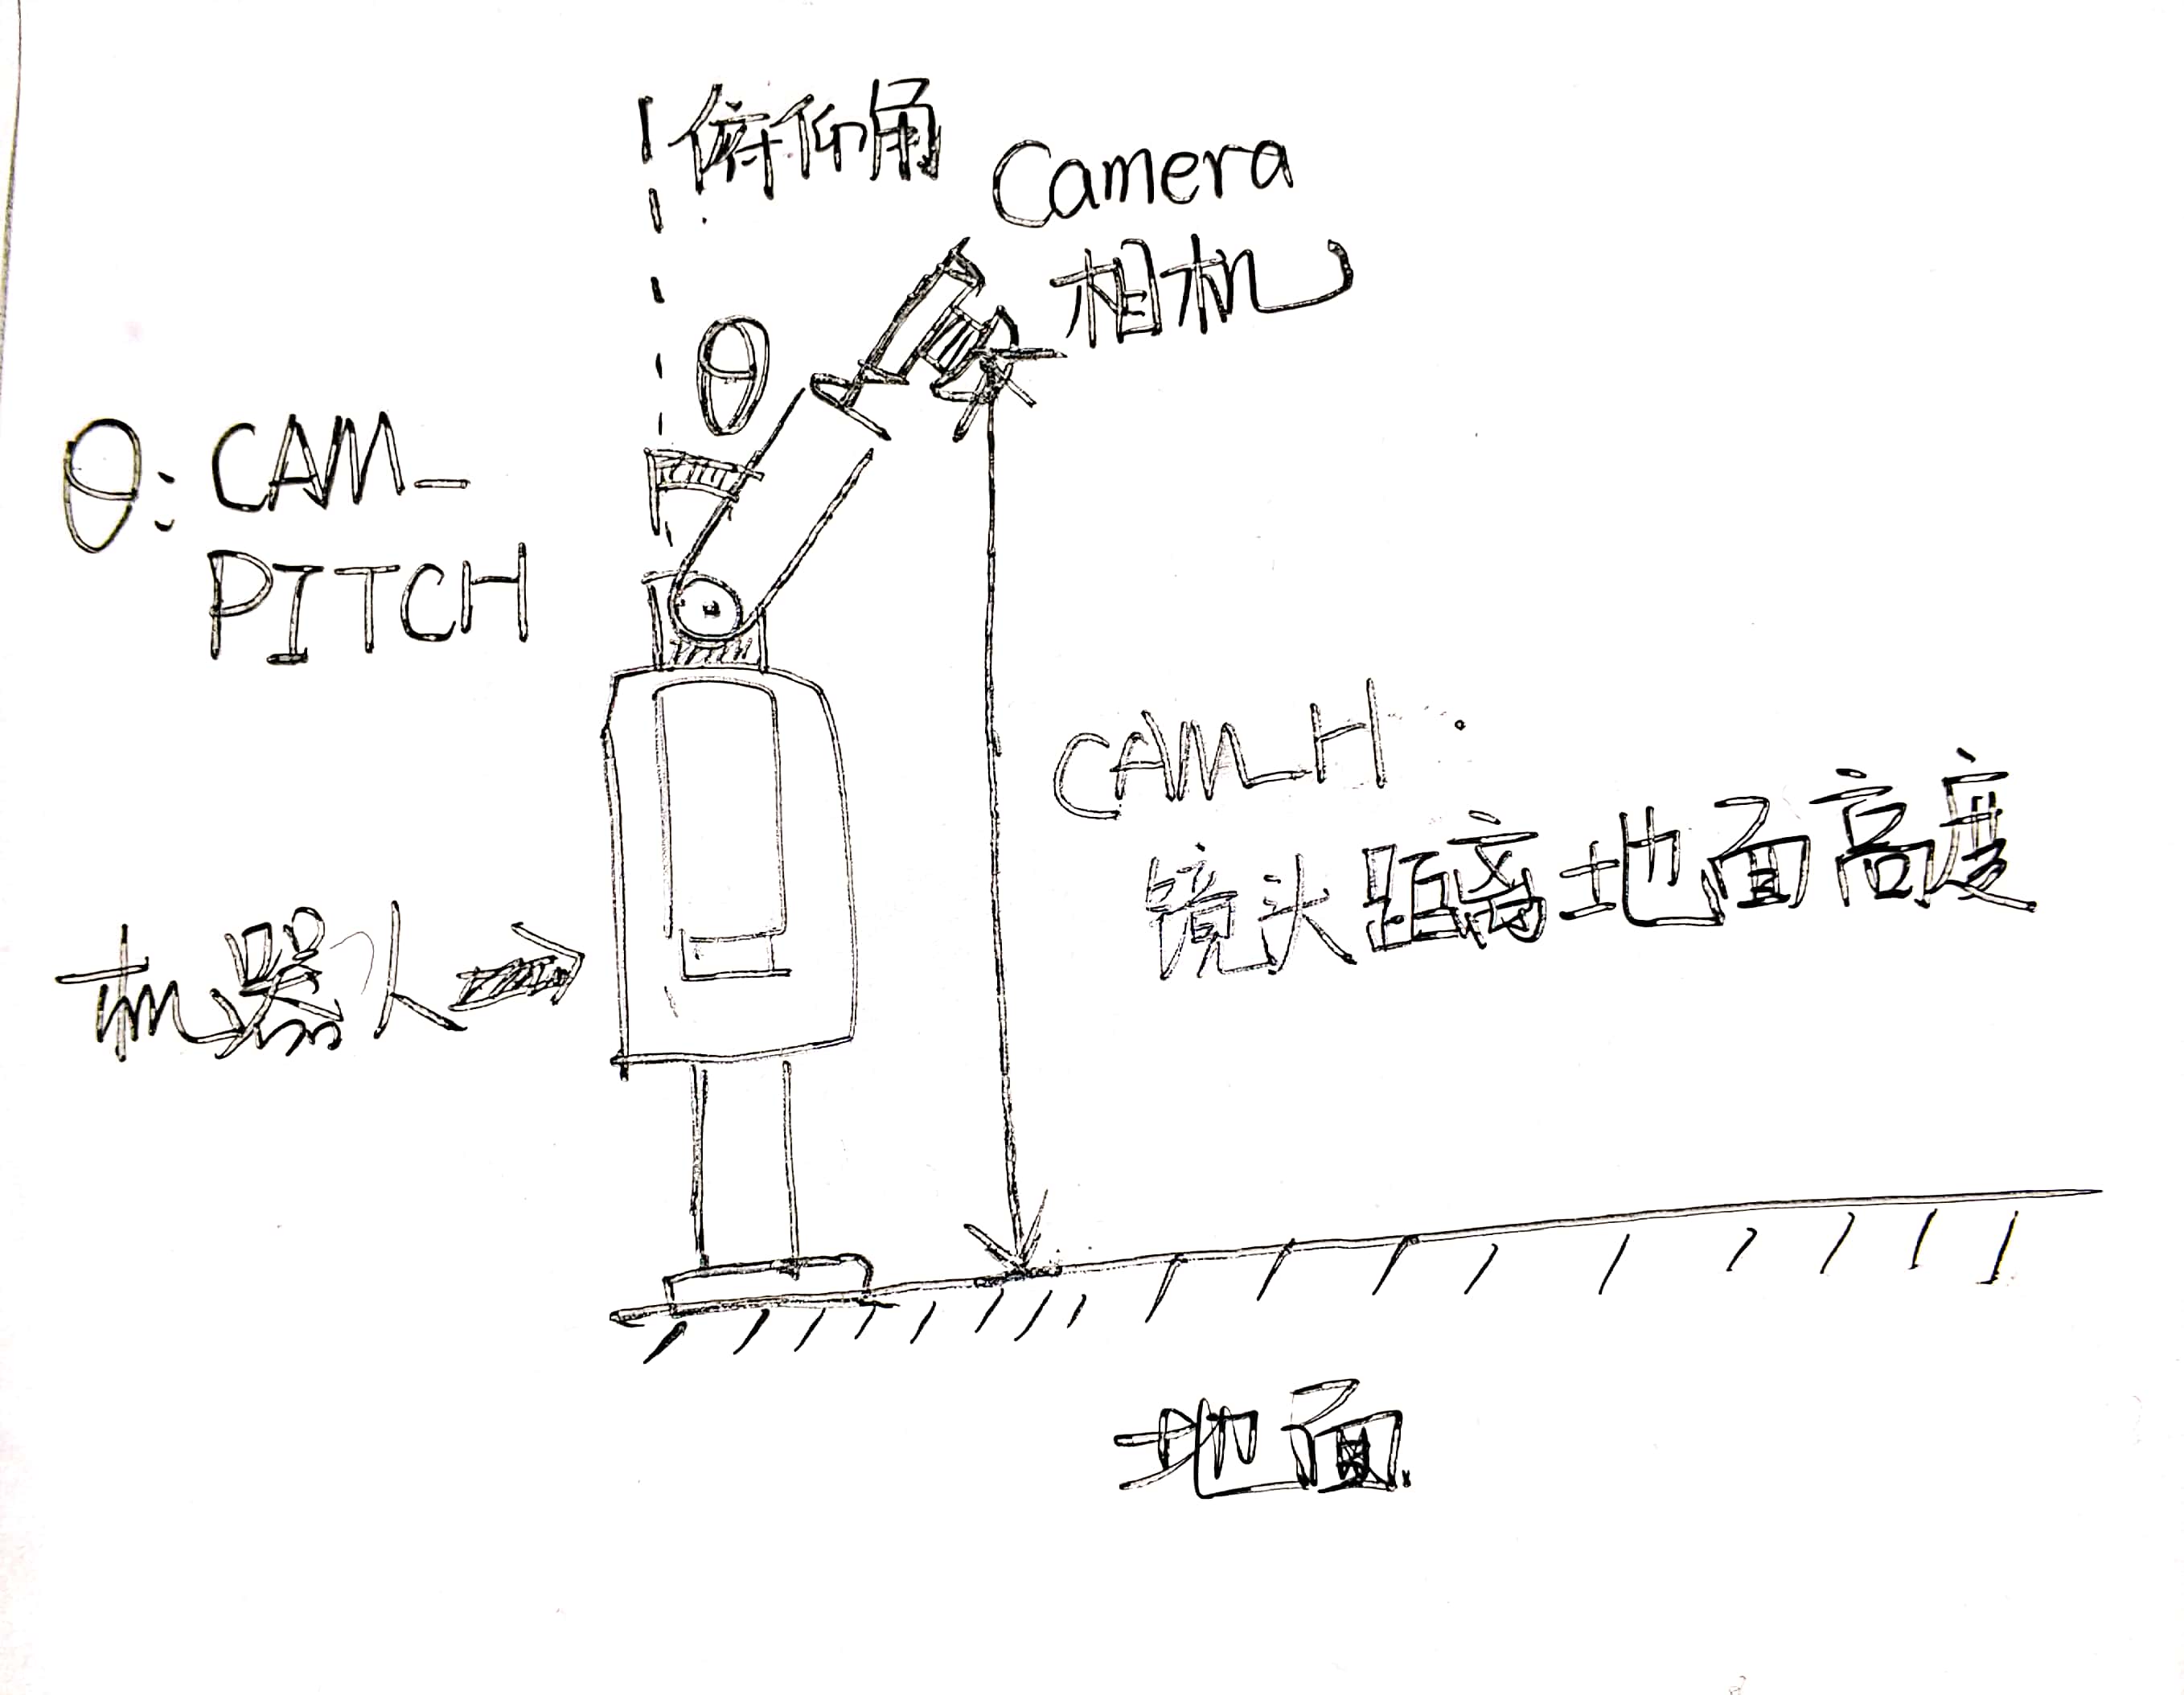 俯仰角
Camera
相机
θ
θ: CAM_
PITCH
CAM_H
镜头距离地面高度
机器人
地面